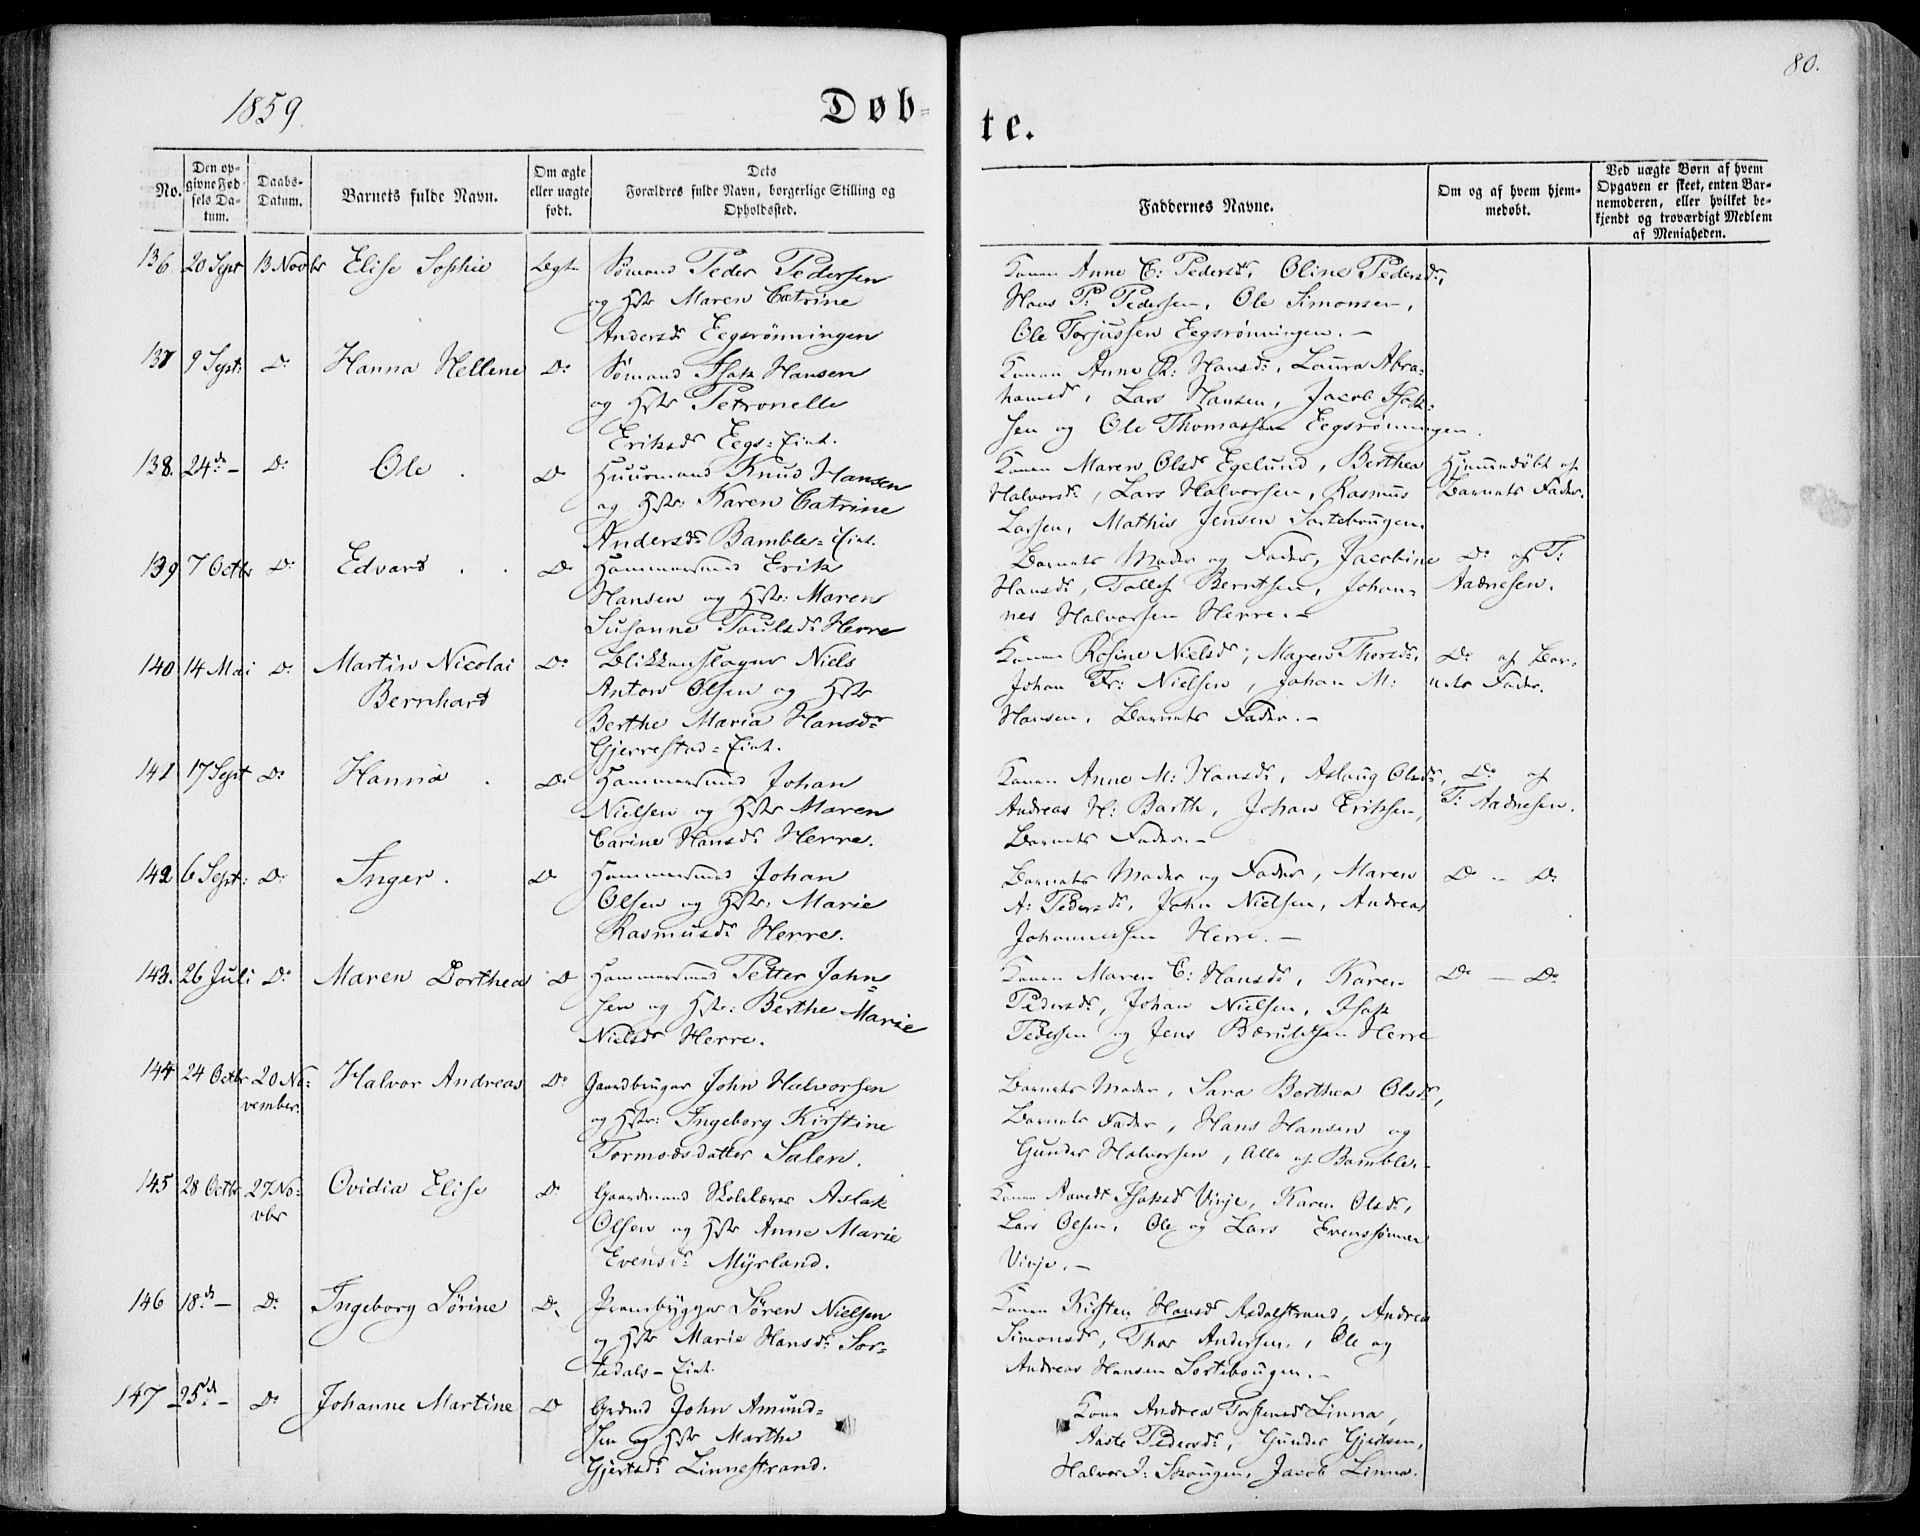 80.
1859.
Døb-
te.
No.
Den opgivne Fødsels Datum.
Daabs-Datum.
Barnets fulde Navn.
Om ægte eller uægte født.
Dets Forældres fulde Navn, borgerlige Stilling og Opholdssted.
Faddernes Navne.
Om og af hvem hjemmedøbt.
Ved uægte Børn af hvem Opgaven er skeet, enten Barnemoderen, eller hvilket bekjendt og troværdigt Medlem af Menigheden.
136 20 Sept 13 Novbr Elise Sophie Ægte Sømand Peder Pedersen
og Hstr Maren Catrine
Andersdr Eegsrønningen
Konen Anne C: Pedersdr, Oline Pedersdr,
Hans P: Pedersen, Ole Simonsen,
Ole Torjussen Eegsrønningen. –
137 9 Sept: Do Hanna Hellene Do Sømand Isak Hansen
og Hstr Petronelle
Eriksdr Eegs-Eint.
Konen Anne K: Hansdr, Laura Abra-
hamsdr, Lars Hansen, Jacob Isak-
sen og Ole Thomassen Eegsrønningen.
138. 24de – Do Ole . Do Huusmand Knud Hansen
og Hstr: Karen Catrine
Andersdr Bamble-Eint.
Konen Maren Olsdr Egelund, Berthea
Halvorsdr, Lars Halvorsen, Rasmus
Larsen, Mathis Jensen Sortebougen.
Hjemmedøbt af
Barnets Fader.
139 7 Octbr Do Edvard . . Do Hammersmed Erik
Hansen og Hstr: Maren
Susanne Poulsdr Herre
Barnets Moder og Fader, Jacobine
Hansdr, Tollef Berntsen, Johan-
nes Halvorsen Herre. –
Do af T:
Aadnesen.
140 14 Mai Do Martin Nicolai
Bernhard
Do Blikkenslager Niels
Anton Olsen og Hstr
Berthe Maria Hansdr
Gjerrestad-Eint.
Konen Rosine Nielsdr, Maren Thorsdr,
Johan Fr: Nielsen, Johan M:
Hansen, Barnets Fader. –
Do af Bar-
nets Fader.
141 17 Sept Do Hanna . Do Hammersmed Johan
Nielsen og Hstr Maren
Carine Hansdr Herre.
Konen Anne M: Hansdr, Aslaug Olsdr,
Andreas H: Barth, Johan Eriksen,
Barnets Fader. –
Do af
T: Aadnesen.
142 6 Sept: Do Inger . Do Hammersmed Johan
Olsen og Hstr: Marie
Rasmusdr Herre.
Barnets Moder og Fader, Maren
A: Pedersdr, John Nielsen, Andreas
Johannessen Herre. –
Do – Do
143. 26 Juli Do Maren Dorthea Do Hammersmed Petter John-
sen og Hstr: Berthe Marie
Nielsdr Herre.
Konen Maren C: Hansdr, Karen
Pedersdr, Johan Nielsen, Isak
Pedersen og Jens Herre
Do – Do
144 24 Octbr 20 No-
vember. Halvor Andreas Do Gaardbruger John Halvorsen
og Hstr: Ingeborg Kirstine
Tormodsdatter Salen.
Barnets Moder, Sara Berthea Olsdr,
Barnets Fader, Hans Hansen og
Gunder Halvorsen, Alle af Bamble. –
145 28 Octbr 27 No-
vbr Ovidia Elise Do Gaardmand Skolelærer Aslak
Olsen og Hstr Anne Marie
Evensdr Myrland.
Konen Isaksdr Virje, Karen Olsdr,
Lars Olsen, Ole og Lars Evenssønner
Virje. –
146 18de – Do Ingeborg Sørine Do Prambygger Søren Nielsen
og Hstr Marie Hansdr Sor-
tedals-Eint.
Konen Kirsten Hansdr Asdalstrand, Andrea
Simonsdr, Thor Andersen, Ole og
Andreas Hansen Sortebougen. –
147 25de – Do Johanne Martine Do Grdmd John Amund-
sen og Hstr Marthe
Gjertsdr Linnestrand.
Kone Andrea Torstensdr Linna,
Aaste Pedersdr, Gunder Gjertsen,
Halvor J: Skougen, Jacob Linna.